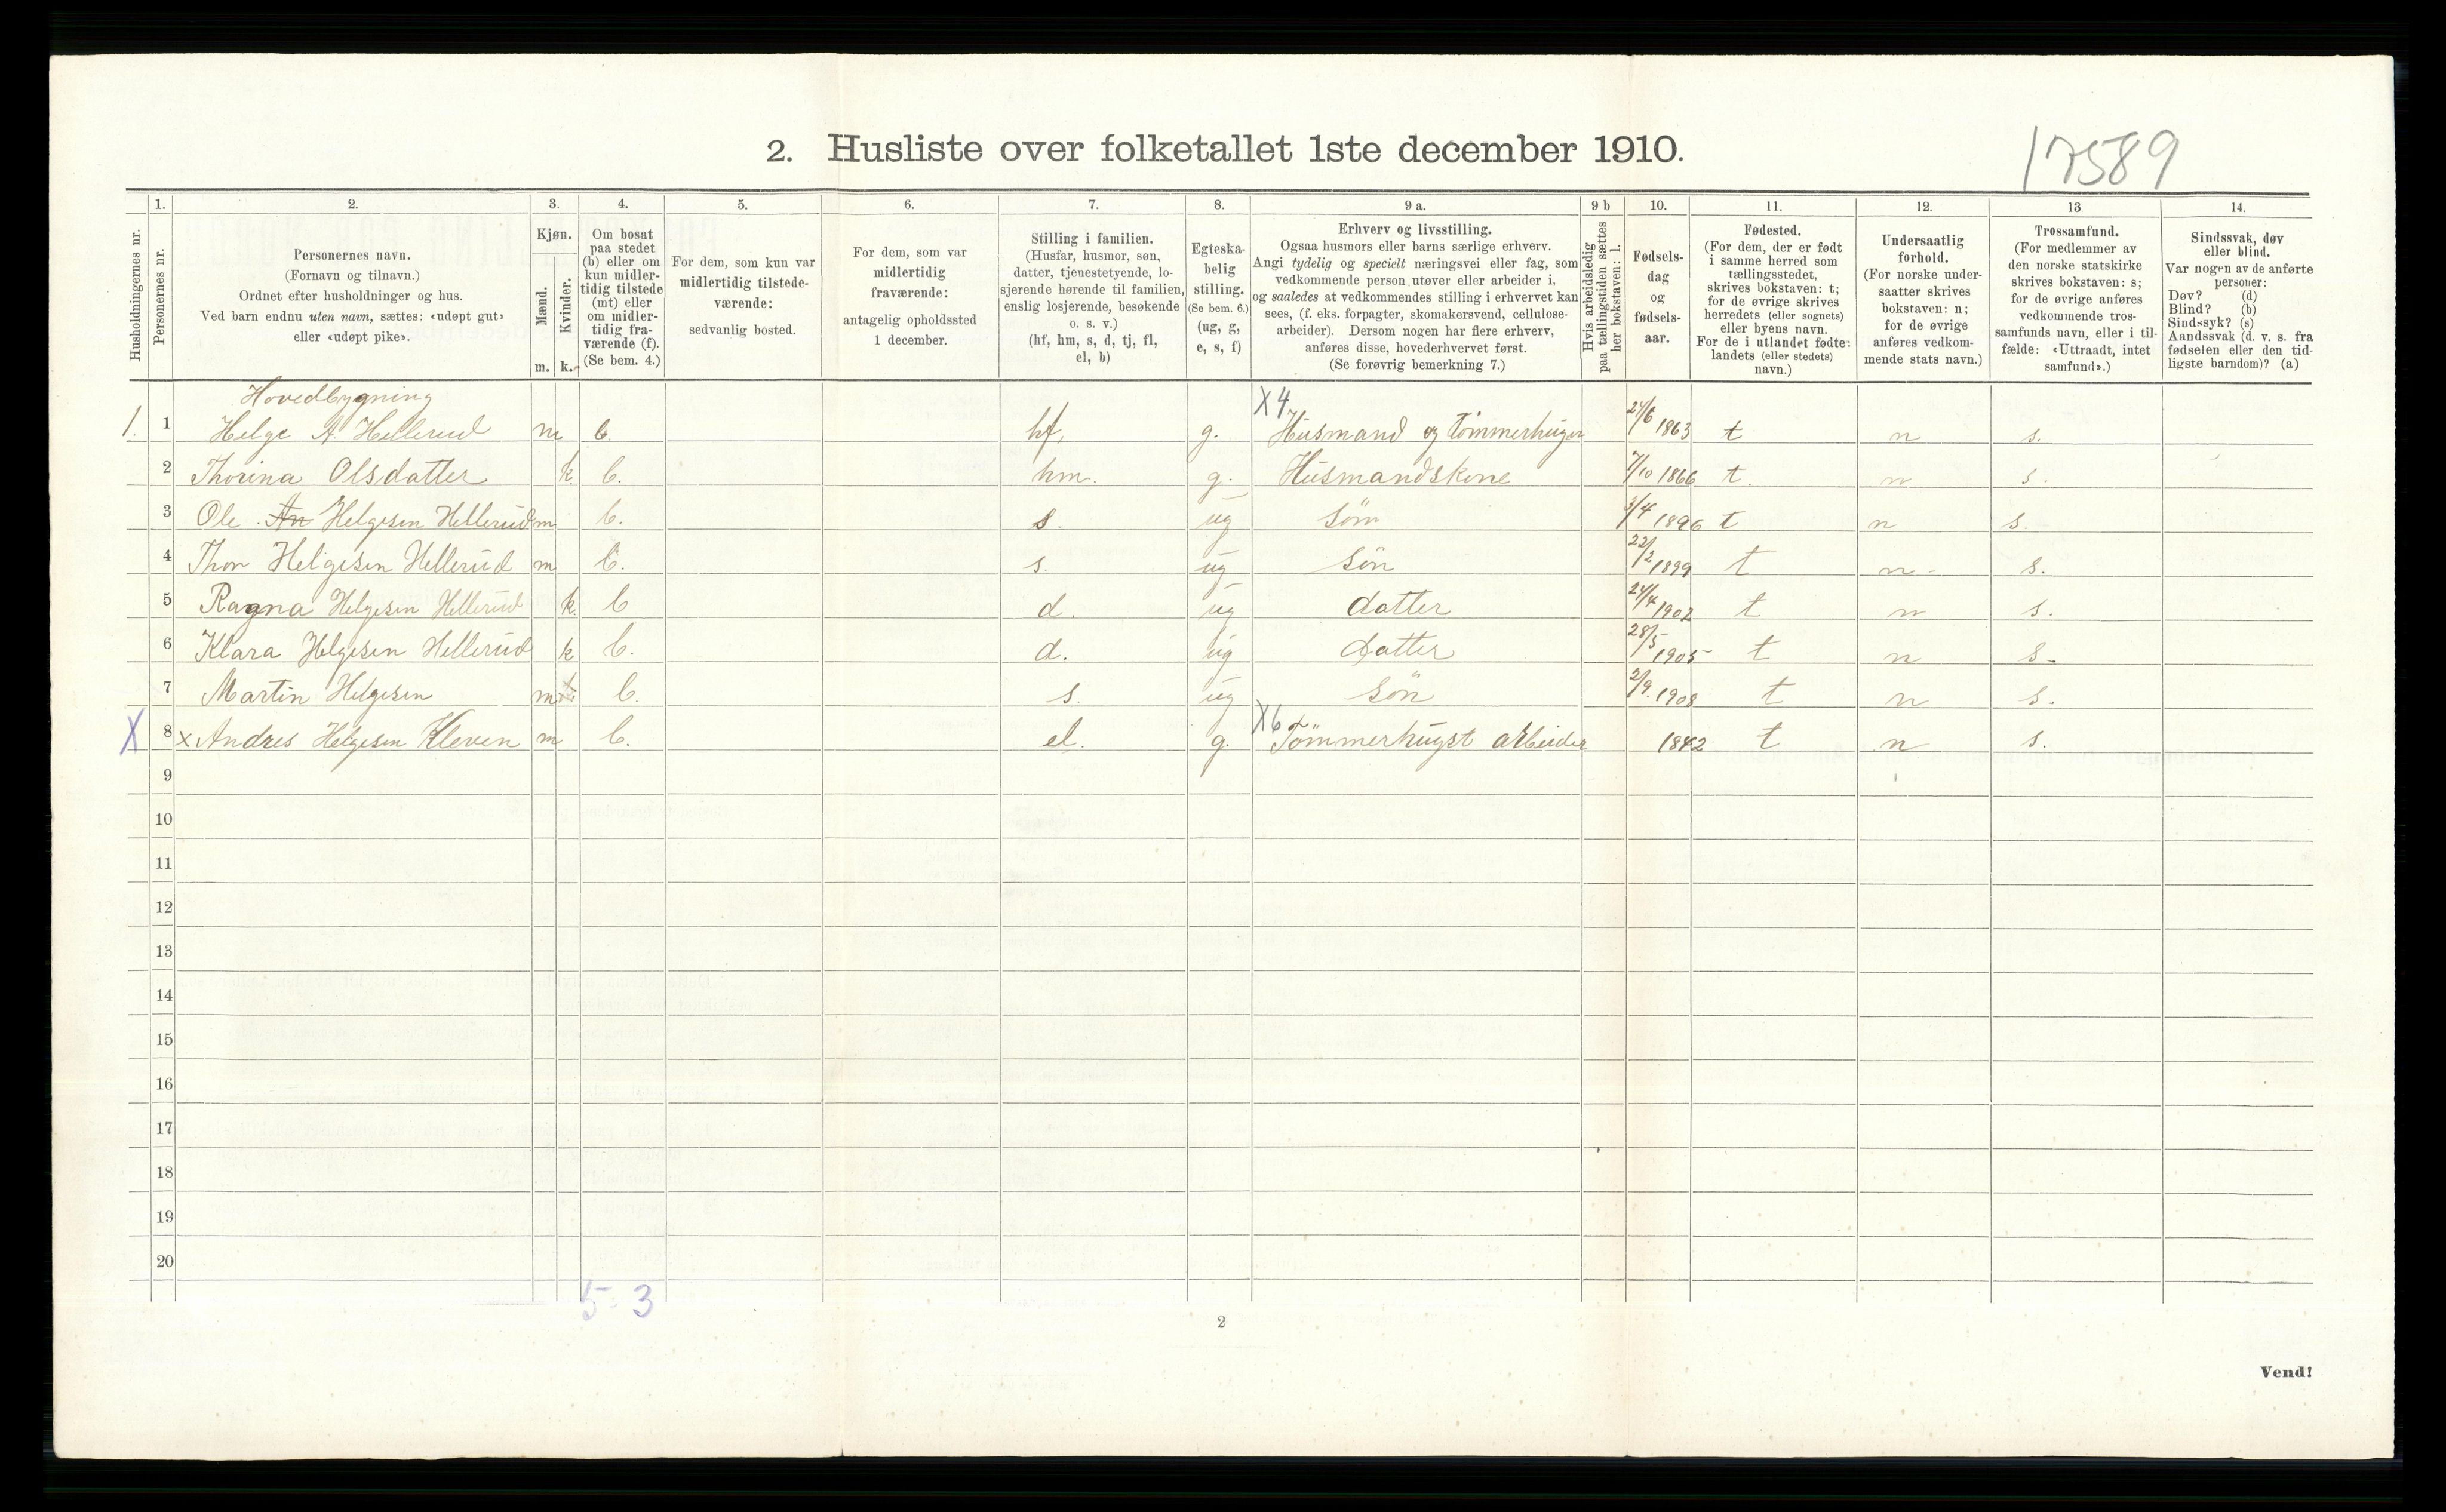 2. Husliste over folketallet 1ste december 1910.
17589
Husholdningernes nr.
1. Personernes nr.
2. Personernes navn.
(Fornavn og tilnavn.)
Ordnet efter husholdninger og hus.
Ved barn endnu uten navn, sættes: «udøpt gut»
eller «udøpt pike».
3. Kjøn.
Mænd. m.
Kvinder. k.
4. Om bosat
paa stedet
(b) eller om
kun midler-
tidig tilstede
(mt) eller
om midler-
tidig fra-
værende (f).
(Se bem. 4.)
5. For dem, som kun var
midlertidig tilstede-
værende:
sedvanlig bosted.
6. For dem, som var
midlertidig
fraværende:
antagelig opholdssted
1 december.
7. Stilling i familien.
(Husfar, husmor, søn,
datter, tjenestetyende, lo-
sjerende hørende til familien,
enslig losjerende, besøkende
o. s. v.)
(hf, hm, s, d, tj, fl,
el, b)
8. Egteska-
belig
stilling.
(Se bem. 6.)
(ug, g,
e, s, f)
9 a. Erhverv og livsstilling.
Ogsaa husmors eller barns særlige erhverv.
Angi tydelig og specielt næringsvei eller fag, som
vedkommende person utøver eller arbeider i,
og saaledes at vedkommendes stilling i erhvervet kan
sees, (f. eks. forpagter, skomakersvend, cellulose-
arbeider). Dersom nogen har flere erhverv,
anføres disse, hovederhvervet først.
(Se forøvrig bemerkning 7.)
9 b Hvis arbeidsledig
paa tællingstiden sættes
her bokstaven: l.
10. Fødsels-
dag
og
fødsels-
aar.
11. Fødested.
(For dem, der er født
i samme herred som
tællingsstedet,
skrives bokstaven: t;
for de øvrige skrives
herredets (eller sognets)
eller byens navn.
For de i utlandet fødte:
landets (eller stedets)
navn.)
12. Undersaatlig
forhold.
(For norske under-
saatter skrives
bokstaven: n;
for de øvrige
anføres vedkom-
mende stats navn.)
13 Trossamfund.
(For medlemmer av
den norske statskirke
skrives bokstaven: s;
for de øvrige anføres
vedkommende tros-
samfunds navn, eller i til-
fælde: «Uttraadt, intet
samfund».)
14. Sindssvak, døv
eller blind.
Var nogen av de anførte
personer:
Døv? (d)
Blind? (b)
Sindssyk? (s)
Aandssvak (d. v. s. fra
fødselen eller den tid-
ligste barndom)? (a)
Hovedbygning X4
1. 1 Helge A Hellerud m b. hf. g. Husmand og Tømmerhuger 24/6 1863 t n s.
2 Thorina Olsdatter k. b. hm. g. Husmandskone 7/10 1866 t. n s.
3 Ole An Helgesen Hellerud m b. s. ug søn 3/4 1896 t n s.
4 Thor Helgesen Hellerud m b. s. ug søn 22/2 1899 t n s.
5 Ragna Helgesen Hellerud k. b d. ug datter 24/4 1902 t n s.
6 Klara Helgesen Hellerud k b. d. ug datter 28/5 1905 t n s.
7 Martin Helgesen m b. s. ug søn 2/9. 1908 t n s.
X 8 x Andres Helgesen Kleven m b. el. g. X6 Tömmerhugst arbeider 1842 t n s.
9
10
11
12
13
14
15
16
17
18
19
20
5-3
2
Vend!